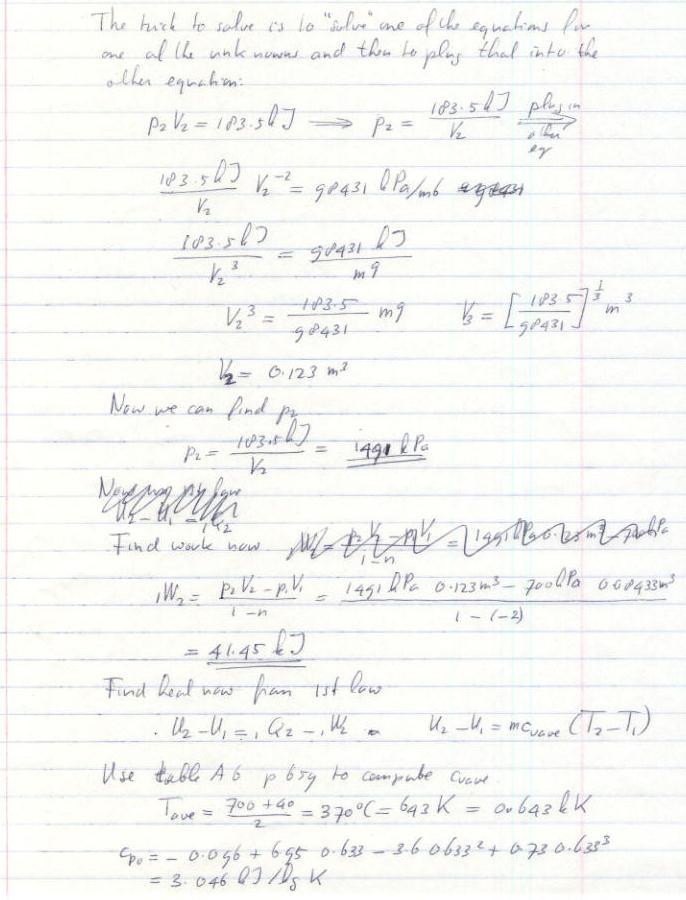 The trick to solve is to "solve" one of the equations for
one of the unknowns and then to plug that into the
other equation:
p₂V₂ = 183.5 kJ ⟹ p₂ = 183.5 kJ / V₂ plug in other eq
183.5 kJ / V₂ V₂⁻² = 98431 kPa/m6
183.5 kJ / V₂³ = 98431 kJ / m9
V₂³ = 183.5 / 98431 m9 V₃ = [183.5 / 98431]^(1/3) m³
V₂ = 0.123 m³
Now we can find p₂
p₂ = 183.5 kJ / V₂ = 1491 kPa
U₂ - U₁ = ₁Q₂
Find work now
₁W₂ = p₂V₂ - p₁V₁ / 1-n = 1491 kPa 0.123m³ - 700kPa 0.08433m³ / 1-(-2)
= 41.45 kJ
Find heat now from 1st law
U₂ - U₁ = ₁Q₂ - ₁W₂ U₂ - U₁ = m cᵥave (T₂ - T₁)
Use table A6 p 659 to compute cvave
Tave = 700 + 40 / 2 = 370°C = 643 K = 0.643 kK
cpo = - 0.096 + 6.95 0.633 - 3.6 0.633² + 0.73 0.633³
= 3.046 kJ/kg K